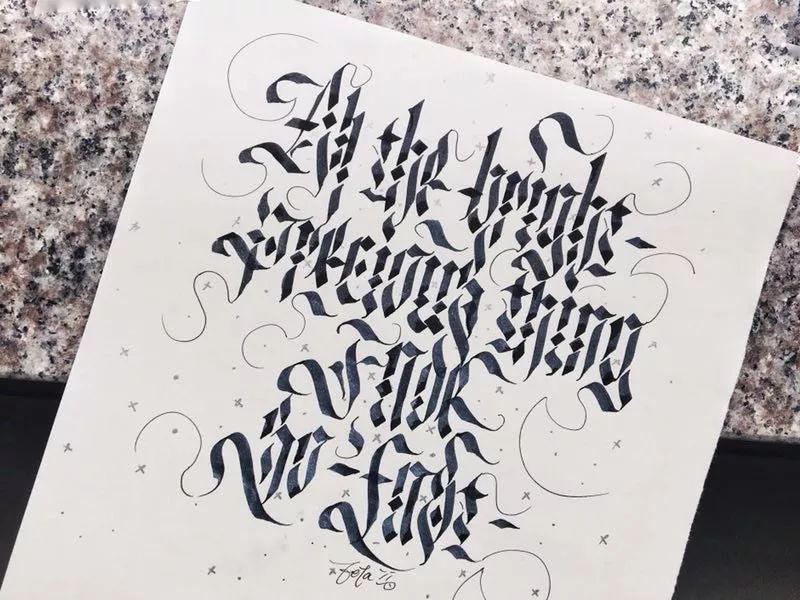 All the bright
Precious thing
Fade
So fast.